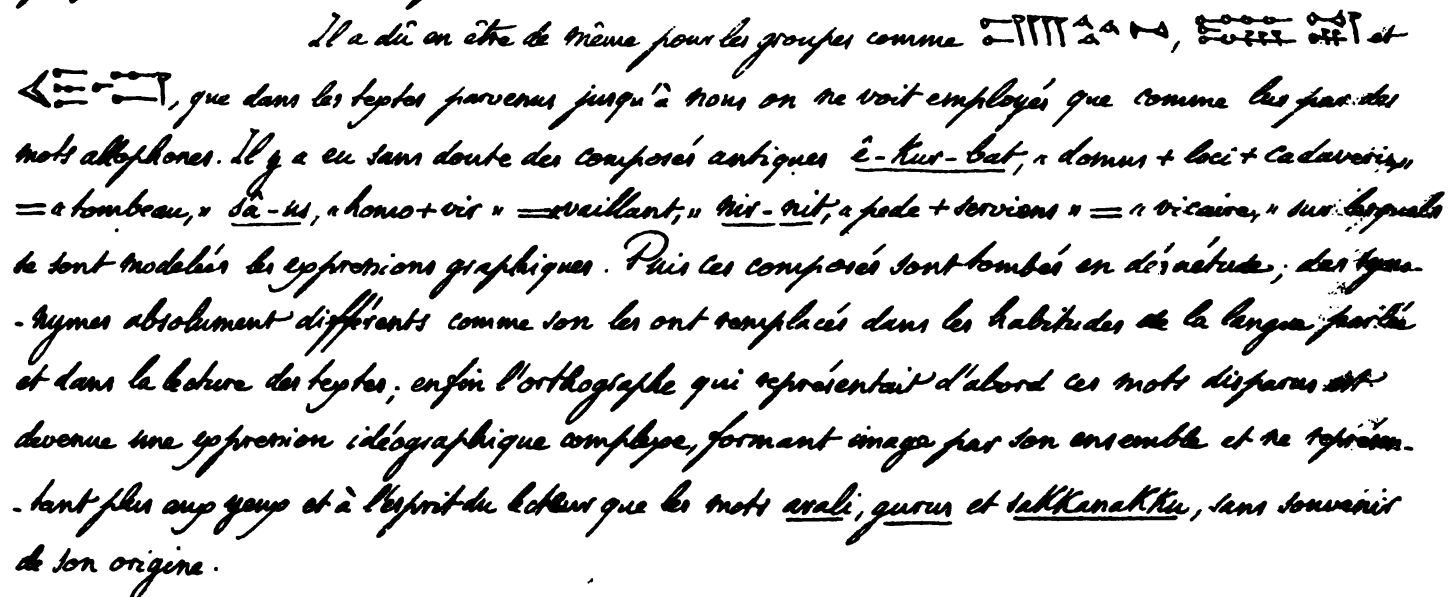 Il a dû en être de même pour les groupes comme , et
, que dans les textes parvenus jusqu'à nous on ne voit employés que comme lus par des
mots allophones. Il y a eu sans doute des composés antiques ê-kur-bat, « domus + loci + cadaveris »
= « tombeau, » sâ-us, « homo + vir » = « vaillant, » nir-nit, « pede + serviens » = « vicaire, » sur lesquels
se sont modelés les expressions graphiques. Puis ces composés sont tombés en désuétude ; des syno-
-nymes absolument différents comme son les ont remplacés dans les habitudes de la langue parlée
et dans la lecture des textes ; enfin l'orthographe qui représentait d'abord ces mots disparus est
devenue une expression idéographique complexe, formant image par son ensemble et ne représen-
-tant plus aux yeux et à l'esprit du lecteur que les mots arali, gurus et sakkanakku, sans souvenir
de son origine.